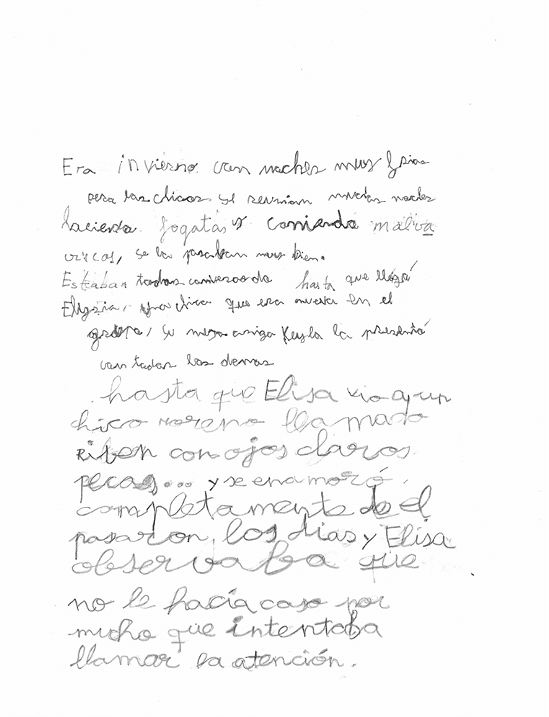 Era invierno con noches muy frias
pero los chicos se reunian muchas noches
haciendo fogatas y comiendo malva
viscos, se lo pasaban muy bien.
Estaban todos conversando hasta que llegó
una chica que era nueva en el
grupo, su mejor amiga Keyla la presentó
con todos los demas
hasta que Elisa vio a un
chico moreno llamado
con ojos claros
pecas... y se enamoró
completamente de el
pasaron los dias y Elisa
observaba que
no le hacía caso por
mucho que intentaba
llamar la atención.